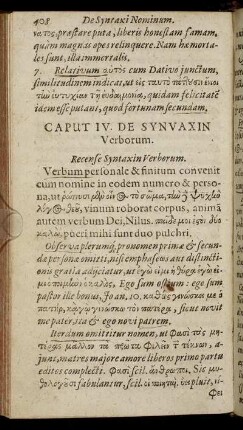 408 De Syntaxi Nominum.
præstare puta, liberis honestam famam,
quàm magnas opes relinquere. Nam hæ morta-
les sunt, illa immortalis.
7. Relativum αὐτὸς cum Dativo junctum,
similitudinem indicat, ut εἰς ταυτὸ
τὴν εὐτυχίαν τῇ εὐδαιμονίᾳ, quidam felicitatẽ
idem esse putant, quod fortunam secundam.
CAPUT IV. DE SYNVAXIN
Verborum.
Recense Syntaxin Verborum.
Verbum personale & finitum convenit
cum nomine in eodem numero & perso-
na, ut οἶνος τὸ σῶμα,
vinum roborat corpus, animã
autem verbum Dei, Nilus. παῖδέ μοι δύο
καλὼ, pueri mihi sunt duo pulchri.
Observa plerumq; pronomen primæ & secun-
dæ personæ omitti, nisi emphaseos aut distincti-
onis gratiâ adjiciatur, ut ἐγώ εἰμι ἡ θύρα. ἐγώ εἰ-
μι ὁ ποιμὴν ὁ καλός, Ego sum ostium: ego sum
pastor ille bonus, Joan, 10. καθὼς γινώσκει με ὁ
πατὴρ, κᾀγὼ γινώσκω τὸν πατέρα, sicut novit
me pater, ita & ego novi patrem.
Iterdum omittitur nomen, ut Φασὶ τὰς μη-
τέρας μᾶλλον τὰ πρῶτα φιλεῖν τ τέκνων, a-
junt, matres majore amore liberos primo partu
editos complecti. Φασὶ scil. ἄνθρωποι. Sic μυ-
θολογοῦσι fabulantur, scil. οἱ ποιηταὶ, ut pluit, νί-
φει